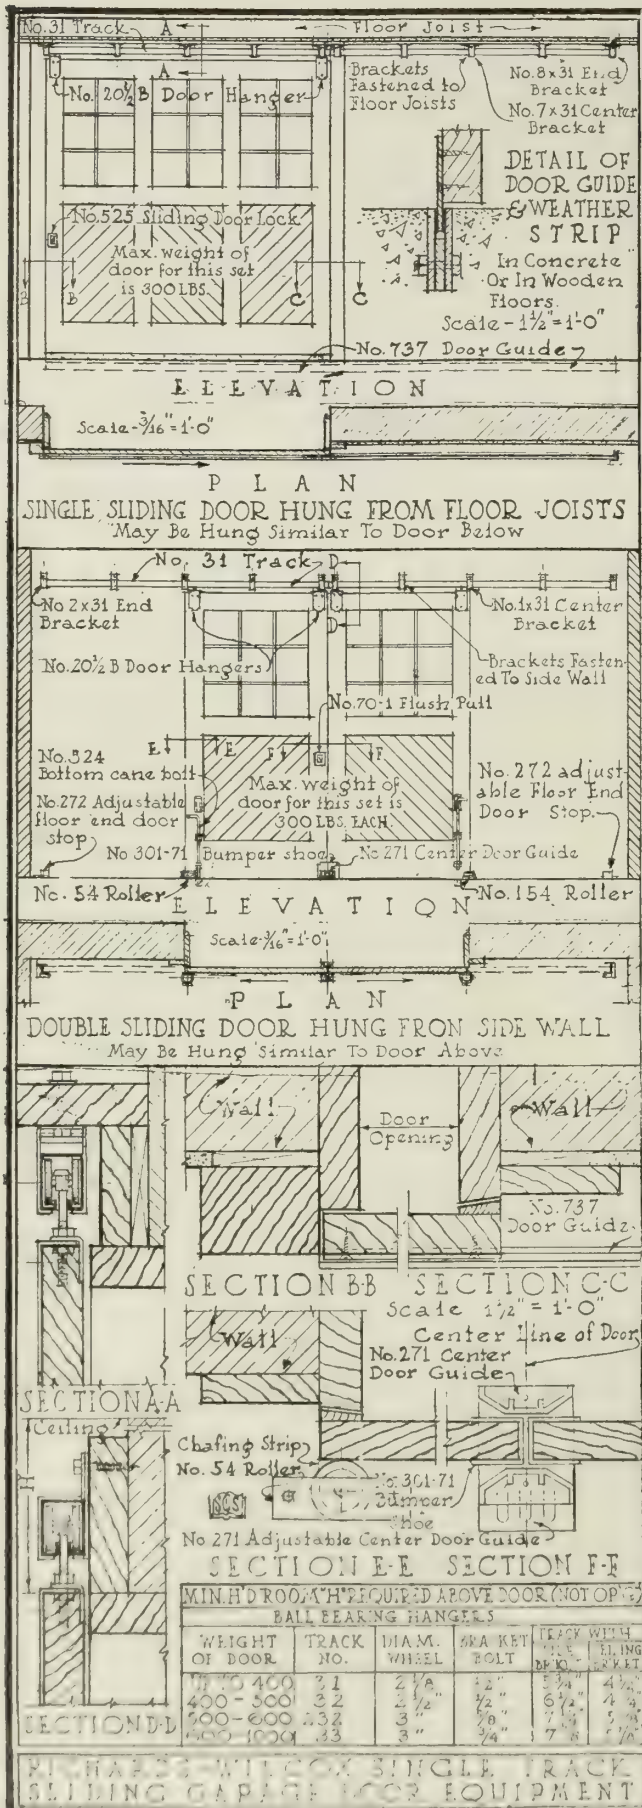 No. 31 Track A Floor Joist
A
No. 20½ B Door Hanger
Brackets
Fastened to
Floor Joists
No. 8x31 End
Bracket
No. 7x31 Center
Bracket
DETAIL OF
DOOR GUIDE
& WEATHER
STRIP
In Concrete
Or In Wooden
Floors.
Scale - 1½" = 1'-0"
No. 525 Sliding Door Lock
Max. weight of
door for this set
is 300 LBS.
B B C C
No. 737 Door Guide
ELEVATION
Scale - 3/16" = 1'-0"
PLAN
SINGLE SLIDING DOOR HUNG FROM FLOOR JOISTS
May Be Hung Similar To Door Below
No. 31 Track D
D
No 2x31 End
Bracket
No. 1x31 Center
Bracket
No. 20½ B Door Hangers
Brackets Fasten-
ed To Side Wall
No. 70-1 Flush Pull
E E F F
No. 524
Bottom cane bolt
No. 272 Adjustable
floor end door
stop
Max. weight of
door for this set is
300 LBS. EACH.
No. 272 adjust-
able Floor End
Door Stop.
No 301-71 Bumper shoe
No 271 Center Door Guide
No. 54 Roller
No. 154 Roller
ELEVATION
Scale 3/16" = 1'-0"
PLAN
DOUBLE SLIDING DOOR HUNG FRON SIDE WALL
May Be Hung Similar To Door Above
Wall
Door
Opening
Wall
No. 737
Door Guide
SECTION B-B SECTION C-C
Scale 1½" = 1'-0"
Center Line of Door
Wall
No. 271 Center
Door Guide
SECTION A-A
Ceiling
H
Chafing Strip
No. 54 Roller
No. 301-71
Bumper
Shoe
SGS
No 271 Adjustable Center Door Guide
SECTION E-E SECTION F-F
SECTION D-D
MIN. H'D ROOM "H" REQUIRED ABOVE DOOR (NOT OP'G)
BALL BEARING HANGERS
WEIGHT OF DOOR TRACK NO. DIAM. WHEEL BRA KET BOLT TRACK WITH
UP TO 400 31 2⅛
400 - 500 32 2½" ½" 6½"
600 332 3"
33 3" ¾"
RICHARDS-WILCOX SINGLE TRACK
SLIDING GARAGE DOOR EQUIPMENT